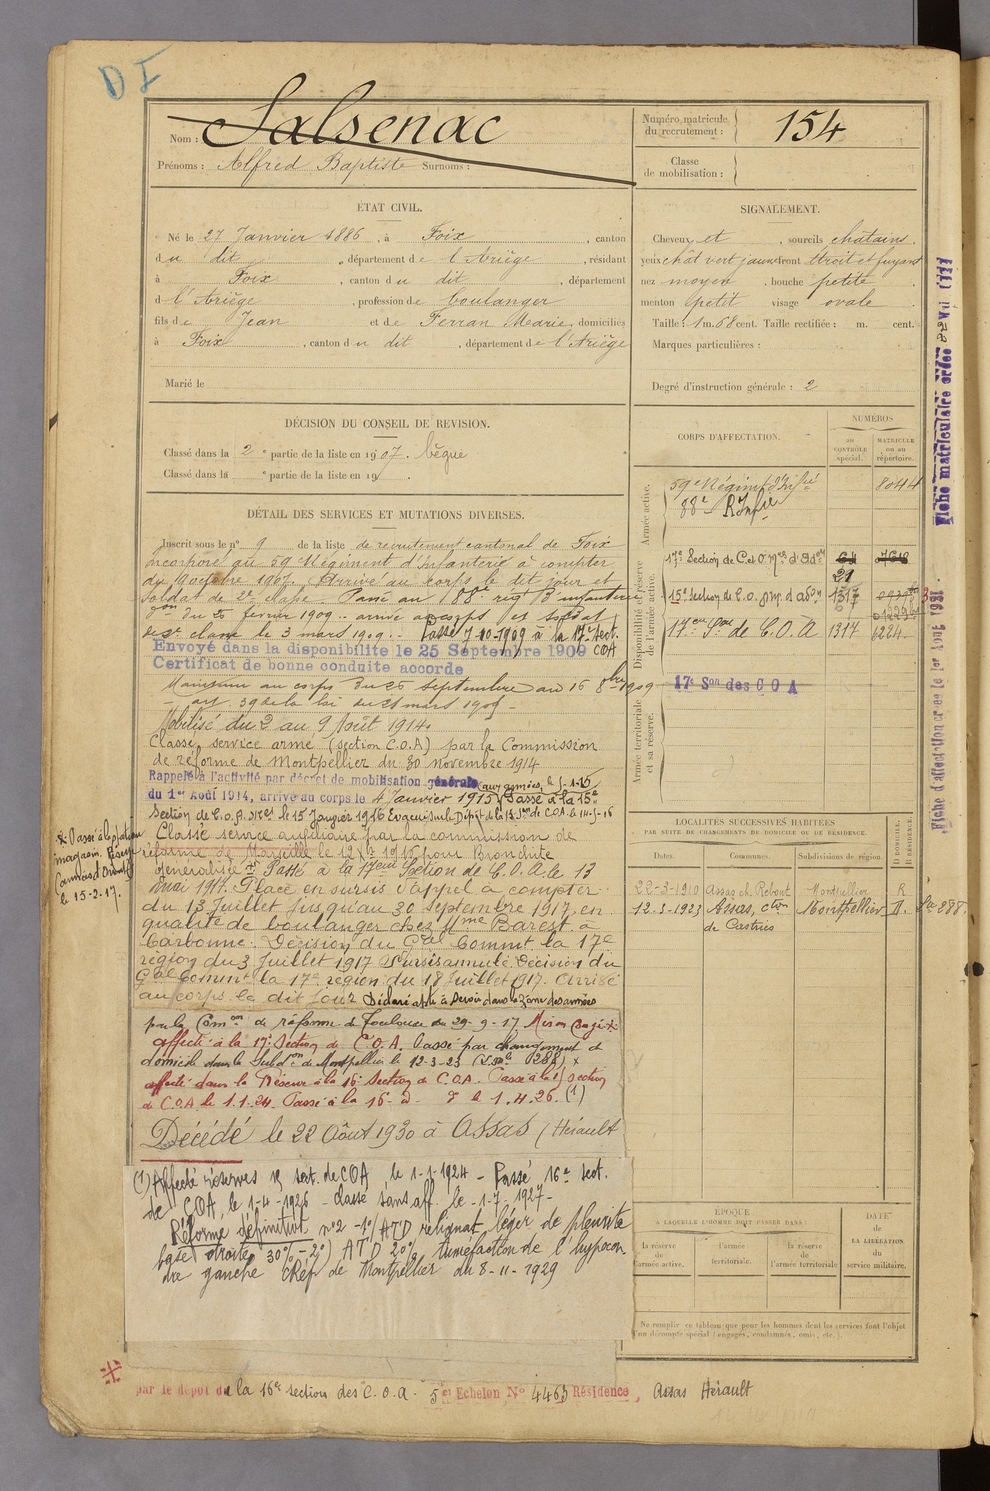 D I
Nom : Salsenac
Prénoms : Alfred Baptiste Surnoms :
Numéro matricule du recrutement : 154
Classe de mobilisation :
ÉTAT CIVIL.
Né le 27 Janvier 1886, à Foix, canton
du dit, département de l'Ariège, résidant
à Foix, canton du dit, département
d l'Ariège, profession de boulanger
fils de Jean et de Ferran Marie, domiciliés
à Foix, canton du dit, département de l'Ariège
Marié le
SIGNALEMENT.
Cheveux et, sourcils chatains.
yeux chat vert jaune front étroit et fuyant
nez moyen, bouche petite.
menton petit visage ovale.
Taille : 1 m. 68 cent. Taille rectifiée : m. cent.
Marques particulières :
Degré d'instruction générale : 2
DÉCISION DU CONSEIL DE REVISION.
Classé dans la 2e partie de la liste en 1907. bègue
Classé dans la e partie de la liste en 19 .
DÉTAIL DES SERVICES ET MUTATIONS DIVERSES.
Inscrit sous le n° 9 de la liste de recrutement cantonal de Foix
incorporé au 59 Régiment d'Infanterie à compter
du octobre 1907. Arrivé au corps le dit jour et
soldat de 2e classe. Passé au 188e regt d'infanterie
février 1909. arrivé au corps et soldat
de 2e classe le 3 mars 1909. Passé 7-10-1909 à la 17e Sect.
COA
Envoyé dans la disponibilité le 25 Septembre 1909
Certificat de bonne conduite accordé
Maintenu au corps du 25 septembre au 16 8bre 1909
art. 39 de la loi du 21 mars 1905-
Mobilisé du 2 au 9 Août 1914.
Classé service armé (section C.O.A) par la Commission
de réforme de Montpellier du 30 novembre 1914
Rappelé à l'activité par décret de mobilisation générale
du 1er Août 1914, arrivé au corps le 4 Janvier 1915 Passé à la 15e
Section de C.O.A. le 15 Janvier 1916 Evacué sur le Dépôt de la 15 Son de C.O.A. le 14-5-16
Classé service auxiliaire par la commission de
réforme de Marseille le 12 pour Bronchite
Passé à la 17eme Section de C.O.A. le 13
Mai 1917. Placé en sursis d'appel à compter
du 13 Juillet jusqu'au 30 septembre 1917 en
qualité de boulanger chez Mme Barest à
Carbonne. Décision du Gal Commt la 17e
région du 3 Juillet 1917 Sursis annulé Décision du
Gal Commt la 17e région du 18 Juillet 1917. Arrivé
au corps le dit jour Déclaré apte à servir dans la zone des armées
par la Comon de réforme de Toulouse du 29-9-17
affecté à la 17e Section de C.O.A. Passé par changement de
domicile dans la Subdon de Montpellier le 12-3-23
affecté dans la Réserve à la 16e Section de C.O.A. Passé à la section
de C.O.A le 1.1.24. Passé à la 16e d° d° le 1.4.26. (1)
Décédé le 22 Août 1930 à Assas (Hérault
(1) Affecté réserves sect. de COA le 1-1-1924 - Passé 16e sect.
de COA, le 1-4-1926 - classé sans aff. le 1-7-1927-
Réformé définitivt n°2 -1°) ATD reliquat léger de pleurite
base droite 30% -2°) ATD 20% tuméfaction de l'hypocon
dre gauche CRéf de Montpellier du 8-11-1929
Passé à la
magasin
le 15-2-17.
CORPS D'AFFECTATION.
NUMÉROS
au contrôle spécial.
matricule ou au répertoire.
Armée active.
59e Régimt d'Infie 8044
88e R Infie
Disponibilité et réserve de l'armée active.
17e Section de C. et O. Mres d'Adon 64 7612
21
15e Section de C.O. M. d'Adon 1317
17eme Son de C.O.A 1317 6224
Armée territoriale et sa réserve.
17e Son des C O A
LOCALITÉS SUCCESSIVES HABITÉES
PAR SUITE DE CHANGEMENTS DE DOMICILE OU DE RÉSIDENCE.
Dates. Communes. Subdivisions de région. D DOMICILE. R RÉSIDENCE.
22-3-1910 Assas ch. Rebout Montpellier R
12.3-1923 Assas, cton de Castries Montpellier D. 288.
ÉPOQUE
A LAQUELLE L'HOMME DOIT PASSER DANS :
la réserve de l'armée active.
l'armée territoriale.
la réserve de l'armée territoriale
DATE de LA LIBÉRATION du service militaire.
Ne remplir ce tableau que pour les hommes dont les services font l'objet d'un décompte spécial (engagés, condamnés, omis, etc.).
par le dépôt de la 16e section des C.O.A. 5e Echelon N° 4463 Résidence, Assas Hérault
Fiche matriculaire créée
Fiche d'affectation créée le 1er Août 1931